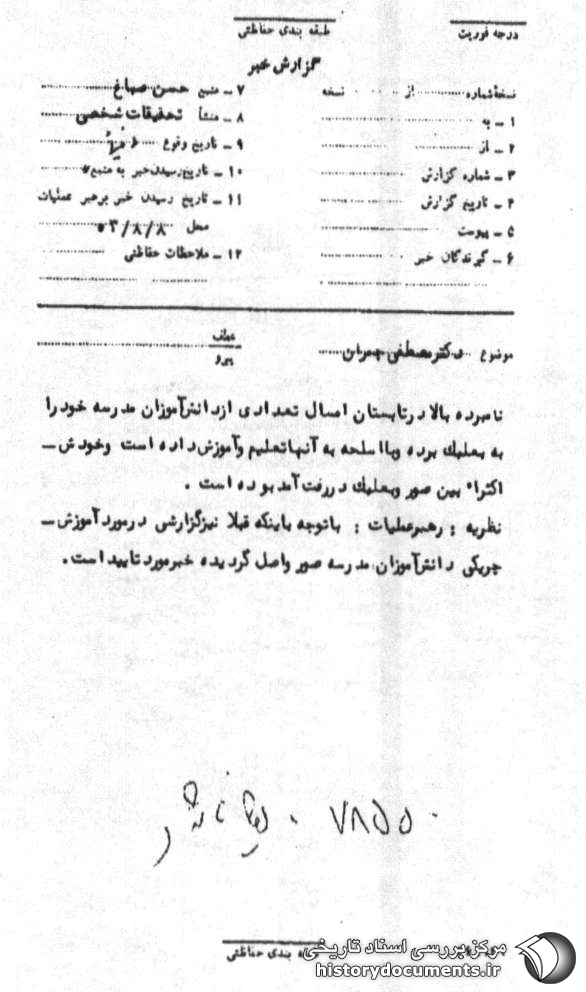 درجه فوریت
طبقه بندی حفاظتی
گزارش خبر
نسخه شماره از نسخه
۱ - به
۲ - از
۳ - شماره گزارش
۴ - تاریخ گزارش
۵ - پیوست
۶ - گیرندگان خبر
۷ - منبع حسن صباغ
۸ - منشأ تحقیقات شخصی
۹ - تاریخ وقوع
۱۰ - تاریخ رسیدن خبر به منبع
۱۱ - تاریخ رسیدن خبر برهبر عملیات
محل ۵۳/۸/۸
۱۲ - ملاحظات حفاظتی
موضوع دکتر مصطفی چمران
عطف
پیرو
نامبرده بالا در تابستان امسال تعدادی از دانش‌آموزان مدرسه خود را
به بعلبک برده و با اسلحه به آنها تعلیم و آموزش داده است و خودش -
اکثراً بین صور و بعلبک در رفت آمد بوده است .
نظریه : رهبر عملیات : با توجه باینکه قبلا نیز گزارشی در مورد آموزش -
چریکی دانش‌آموزان مدرسه صور واصل گردیده خبر مورد تایید است .
۷۸۵۵۰
بندی حفاظتی
مرکز بررسی اسناد تاریخی
historydocuments.ir